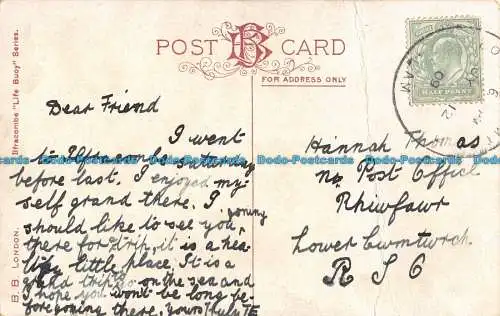 POST B CARD
FOR ADDRESS ONLY
HALF PENNY
Ilfracombe "Life Buoy" Series.
B. B. LONDON.
Dear Friend
I went
to Ilfracombe Saturday
before last. I enjoyed my-
self grand there. I
should like to see you, going
there for a trip, it is a hea-
lthy little place. It is a
grand trip to go on the sea and
I hope you wont be long be-
fore going there. Yours Truly TE
Hannah Thomas
nr Post Office
Rhiwfawr
Lower Cwmtwrch
R S O
Dodo-Postcards Dodo-Postcards Dodo-Postcards Dodo-Postcards